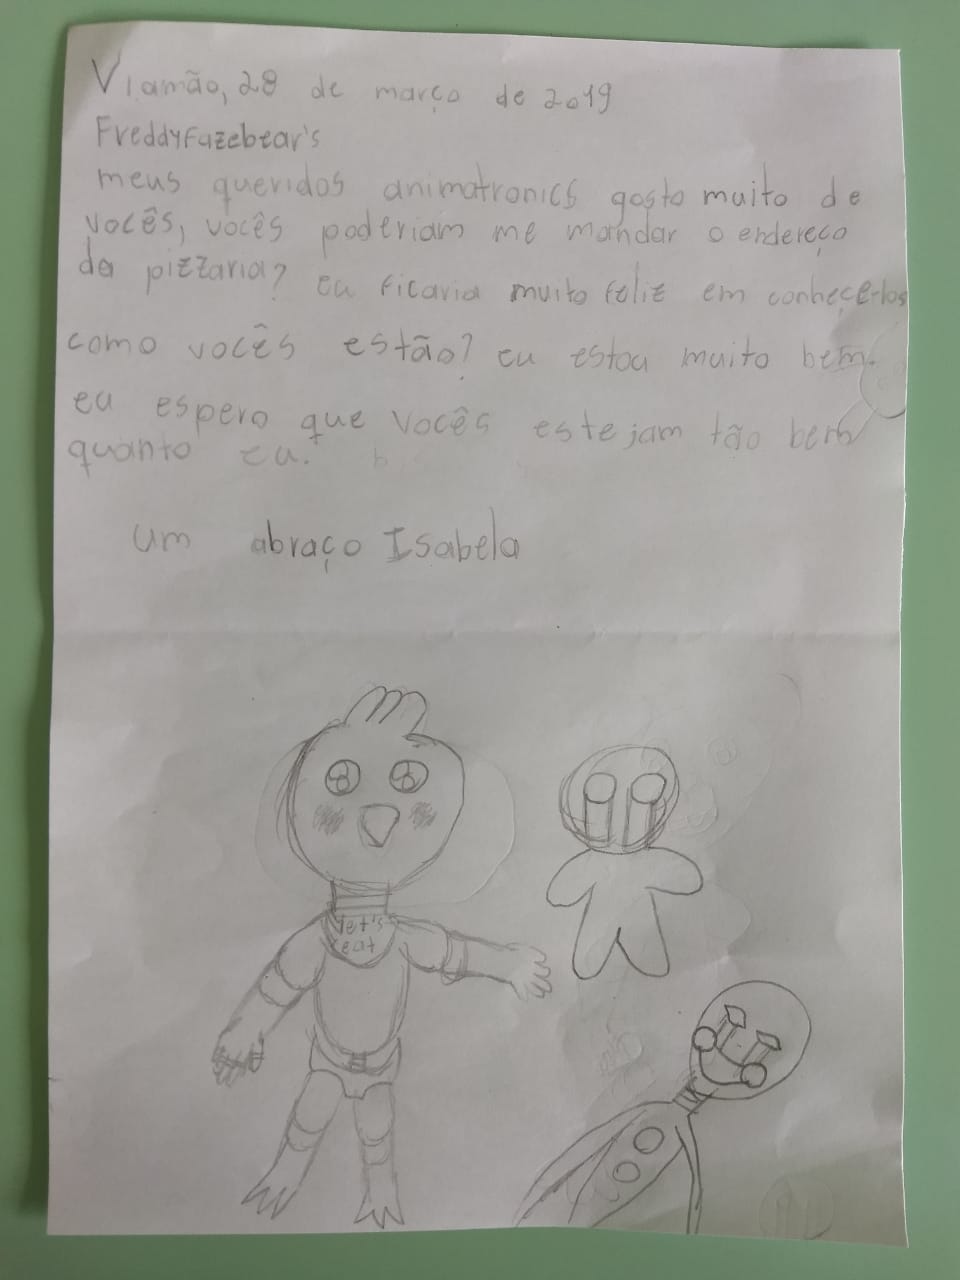 Viamão, 28 de março de 2019
FreddyFazebear's
meus queridos animatronics gosto muito de
vocês, vocês poderiam me mandar o endereço
da pizzaria? eu ficaria muito feliz em conheçe-los
como vocês estão? eu estou muito bem.
eu espero que vocês estejam tão bem
quanto eu.
um abraço Isabela
let's
eat